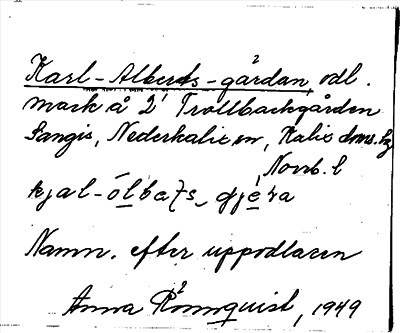 Karl-Alberts-gärdan, odl.
mark å 2¹ Trollbackgården
Sangis, Nederkalix sn, Kalix doms. hg
Norrb. l
kjal-ólbaʈs gjæra
Namn. efter uppodlaren
Anna Rönnquist, 1949